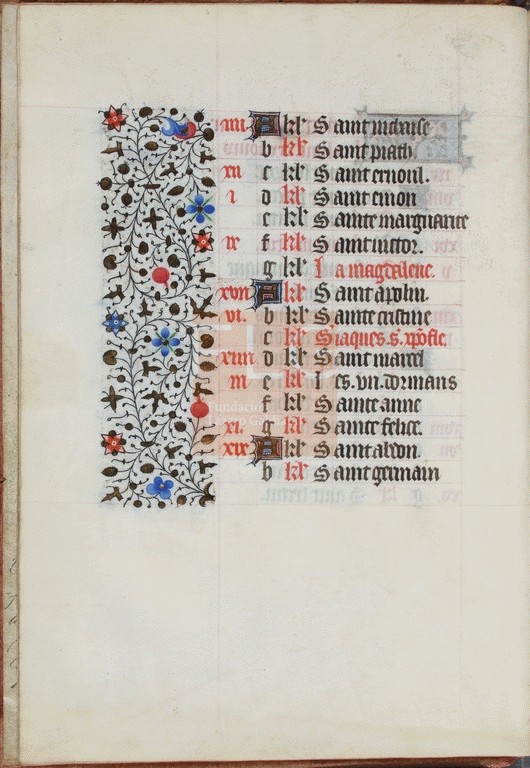 iiii A kl' Saint
b kl' Saint piath.
xii c kl' Saint ernoul.
i d kl' Saint
e kl' Sainte marguarite
ix f kl' Saint victor.
g kl' La magdaleine.
xvii A kl' Saint apolin.
vi. b kl' Sainte cristine
c kl' S. iaques. s. xp̄ofle.
xiiii d kl' Saint marcel
iii e kl' Les. vii. dormans
f kl' Sainte anne
xi. g kl' Sainte felice.
xix A kl' Saint abdon.
b kl' Saint germain
Fundación
Lázaro Galdiano